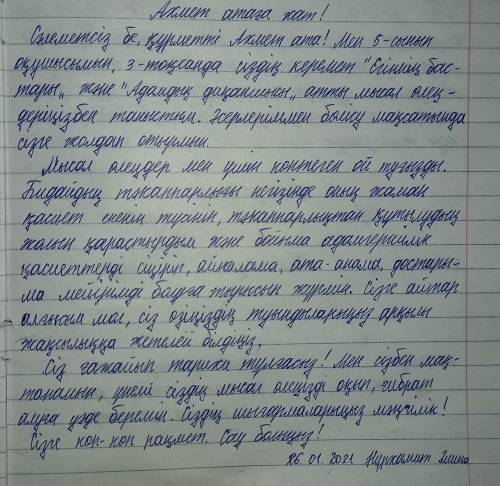 Ахмет атаға хат!
Сәлеметсіз бе, құрметті Ахмет ата! Мен 5-сынып
оқушысымын, 3-тоқсанда сіздің керемет "Егіннің бас-
тары„ және "Адамдық диқаншысы„ атты мысал өлең-
деріңізбен таныстым. Әсерлеріммен бөлісу мақсатында
сізге жолдап отырмын.
Мысал өлеңдер мен үшін көптеген ой туғызды.
Бидайдың тәкаппарлығы негізінде оның жаман
қасиет екенін түйіп, тәкаппарлықтан құтылудың
жолын қарастырдым және бойыма адамгершілік
қасиеттерді сіңіріп, айналама, ата-анама, достары-
ма мейірімді болуға тырысып жүрмін. Сізге айтар
алғысым мол, сіз өзіңіздің туындыларыңыз арқылы
жақсылыққа жетелей білдіңіз.
Сіз ғажайып тарихи тұлғасыз! Мен сізбен мақ-
танамын, үнемі сіздің мысал өлеңізді оқып, ғибрат
алуға уәде беремін. Сіздің шығармаларыңыз мәңгілік!
Сізге көп-көп рақмет. Сау болыңыз!
26.01.2021 Нұрхамит